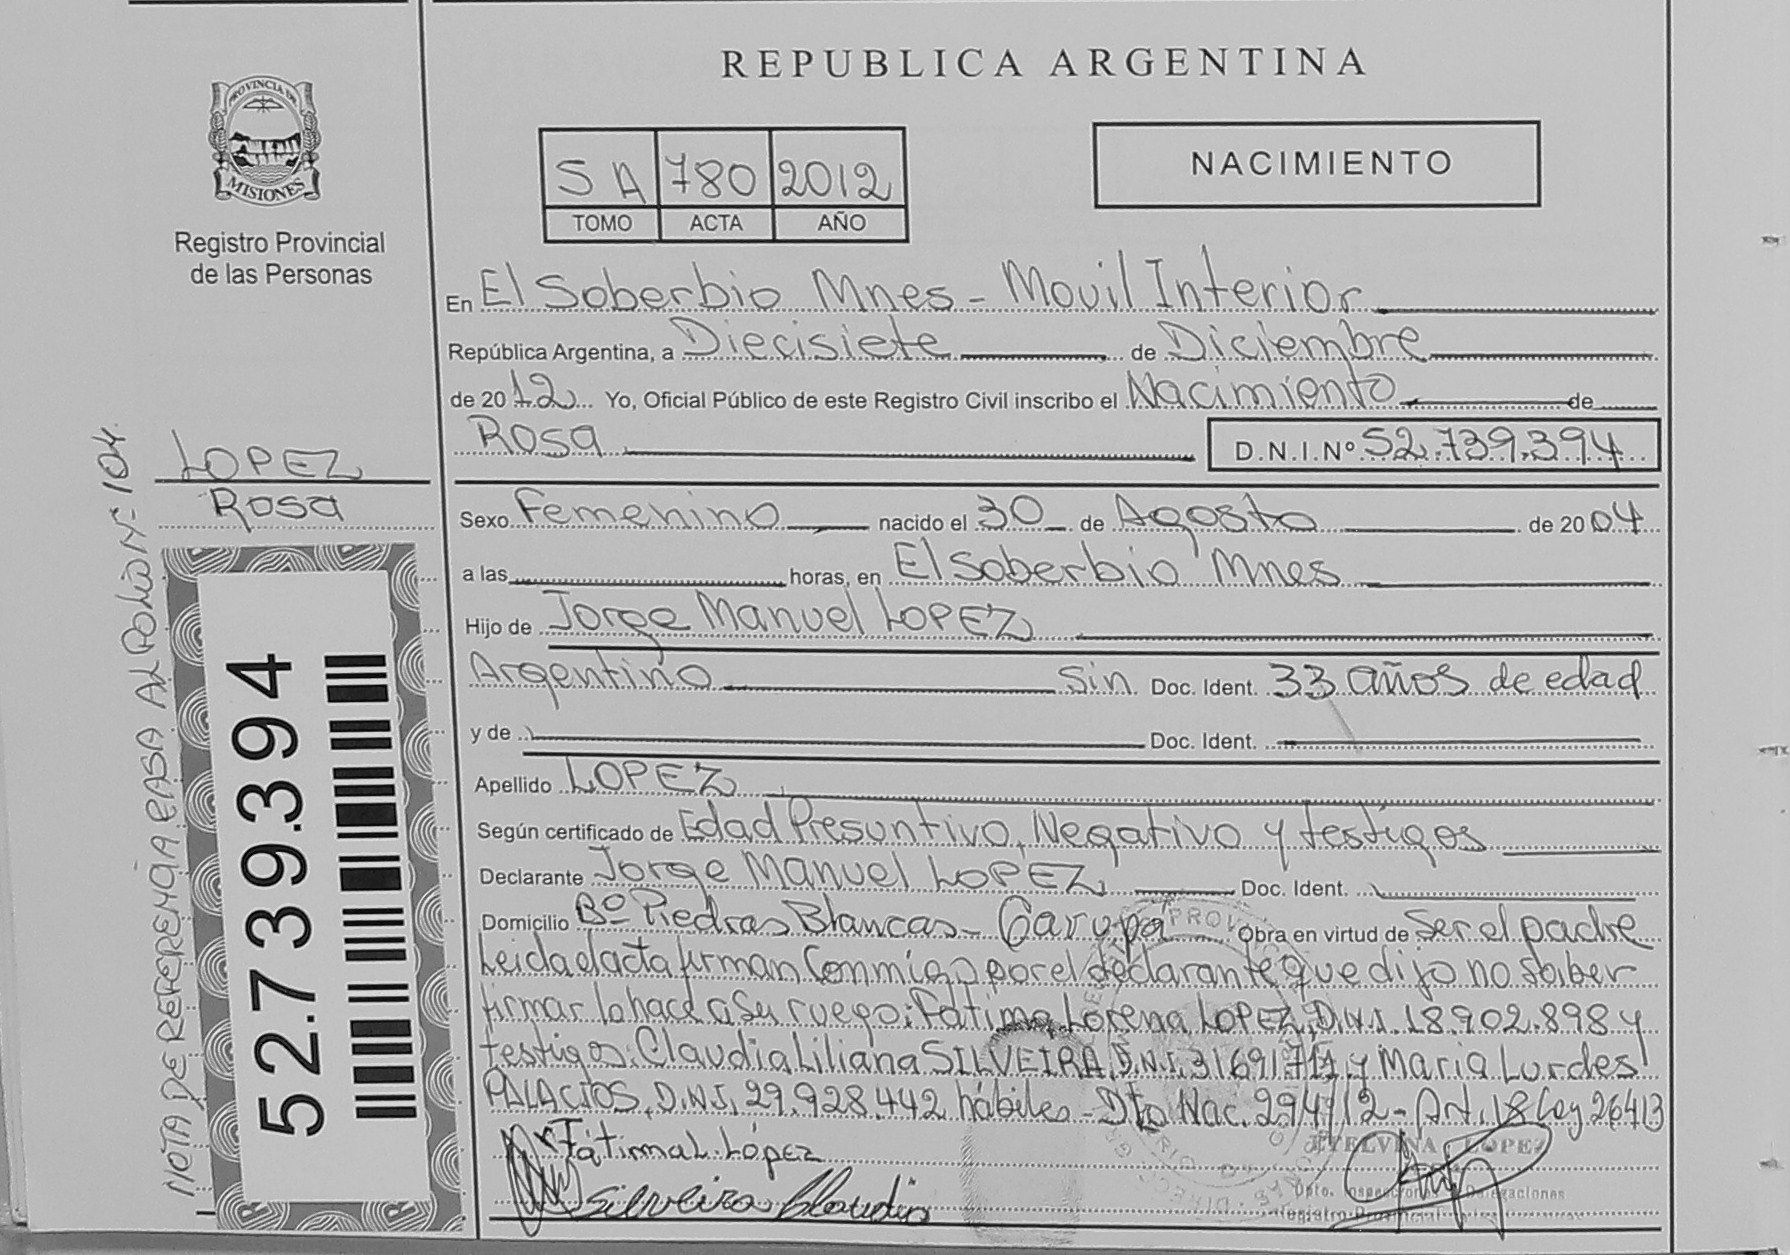 REPUBLICA ARGENTINA
PROVINCIA DE
MISIONES
Registro Provincial
de las Personas
S A 780 2012
TOMO ACTA AÑO
NACIMIENTO
En El Soberbio Mnes - Movil Interior
República Argentina, a Diecisiete de Diciembre
de 2012 Yo, Oficial Público de este Registro Civil inscribo el Nacimiento de
Rosa D.N.I.Nº 52.739.394
LOPEZ
Rosa
Sexo Femenino nacido el 30 de Agosto de 2004
a las horas, en El Soberbio Mnes
Hijo de Jorge Manuel LOPEZ
Argentino Sin Doc. Ident. 33 años de edad
y de Doc. Ident.
Apellido LOPEZ
Según certificado de Edad Presuntivo, Negativo y testigos
Declarante Jorge Manuel LOPEZ Doc. Ident.
Domicilio Bº Piedras Blancas - Garupa Obra en virtud de ser el padre
Leida el acta firman Conmigo por el declarante que dijo no saber
firmar lo hace a su ruego: Fátima Lorena LOPEZ, D.N.I. 18.902.898 y
testigos: Claudia Liliana SILVEIRA, D.N.I. 31691711 y Maria Lurdes
PALACIOS, D.N.I. 29.928.442 hábiles - Dto Nac. 294/12 - Art. 18 Ley 26413
Fátima L. López
Silveira Claudia
ETELVINA LOPEZ
Dpto. Inspecciones y Delegaciones
Registro Provincial
NOTA DE REFERENCIA PASA AL FOLIO Nº 104.
52.739.394